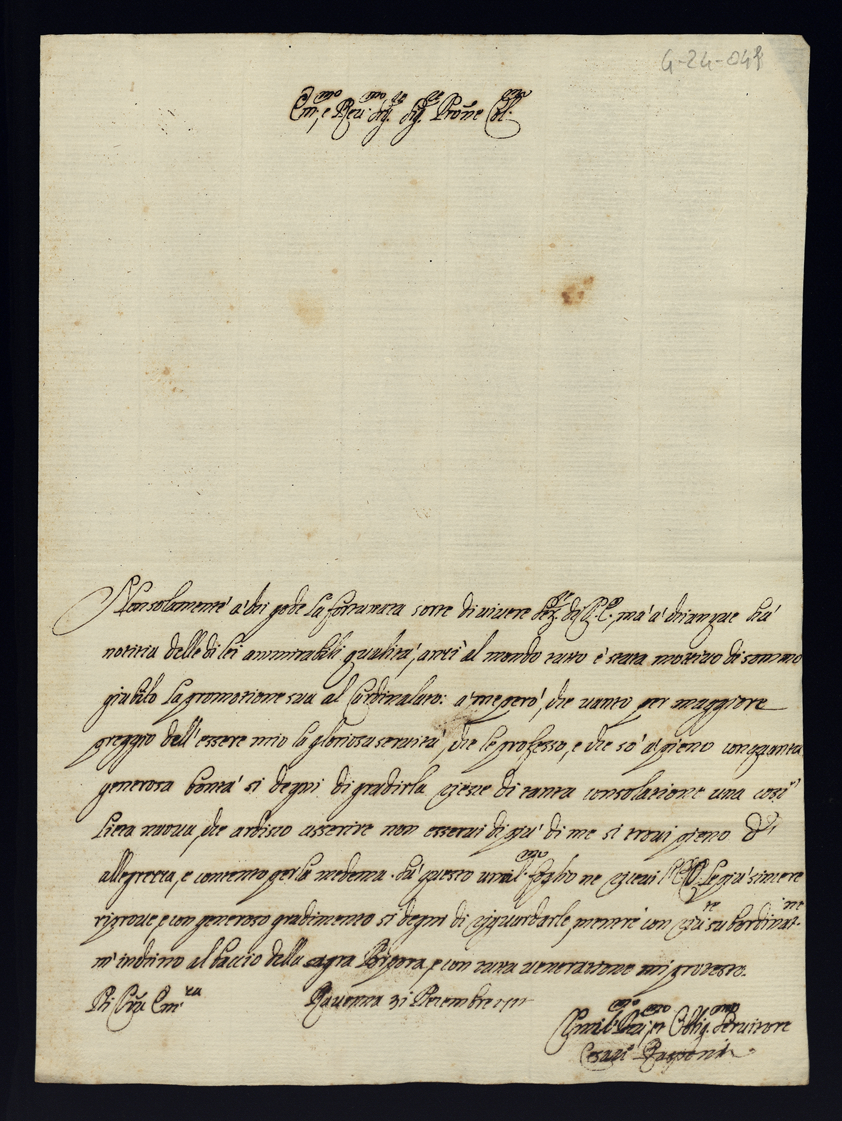 4-24-048
Em.mo, e Reu.mo Sig.re Sig.re Pron̄e Col.mo
Non solamente à chi gode la fortunata sorte di viuere di V. E., mà à chiunque hà
notitia delle di lei ammirabili qualità, anzi al mondo tutto è stata motiuo di sommo
giubilo la promotione sua al Cardinalato: à me però, che vanto per maggiore
preggio dell'essere mio la gloriosa seruitù, che le professo, e che sò à pieno con quanta
generosa bontà si degni di gradirla riesce di tanta consolatione una così
lieta nuoua, che ardisco asserire non esserui di più di me si troui pieno di
allegrezza, e contento per la medema. Da questo umil.mo foglio ne riceui l'E. V. le più sincere
riproue, e con generoso gradimento si degni di riguardarle, mentre con più subordinat.ne
m'inchino al baccio della sagra Porpora, e con tutta veneratione mi protesto.
Di V̄ra Em.za
Rauenna 31 Decembre
Umil.mo Deu.mo et Oblig.mo Seruitore
Cesare Rasponi